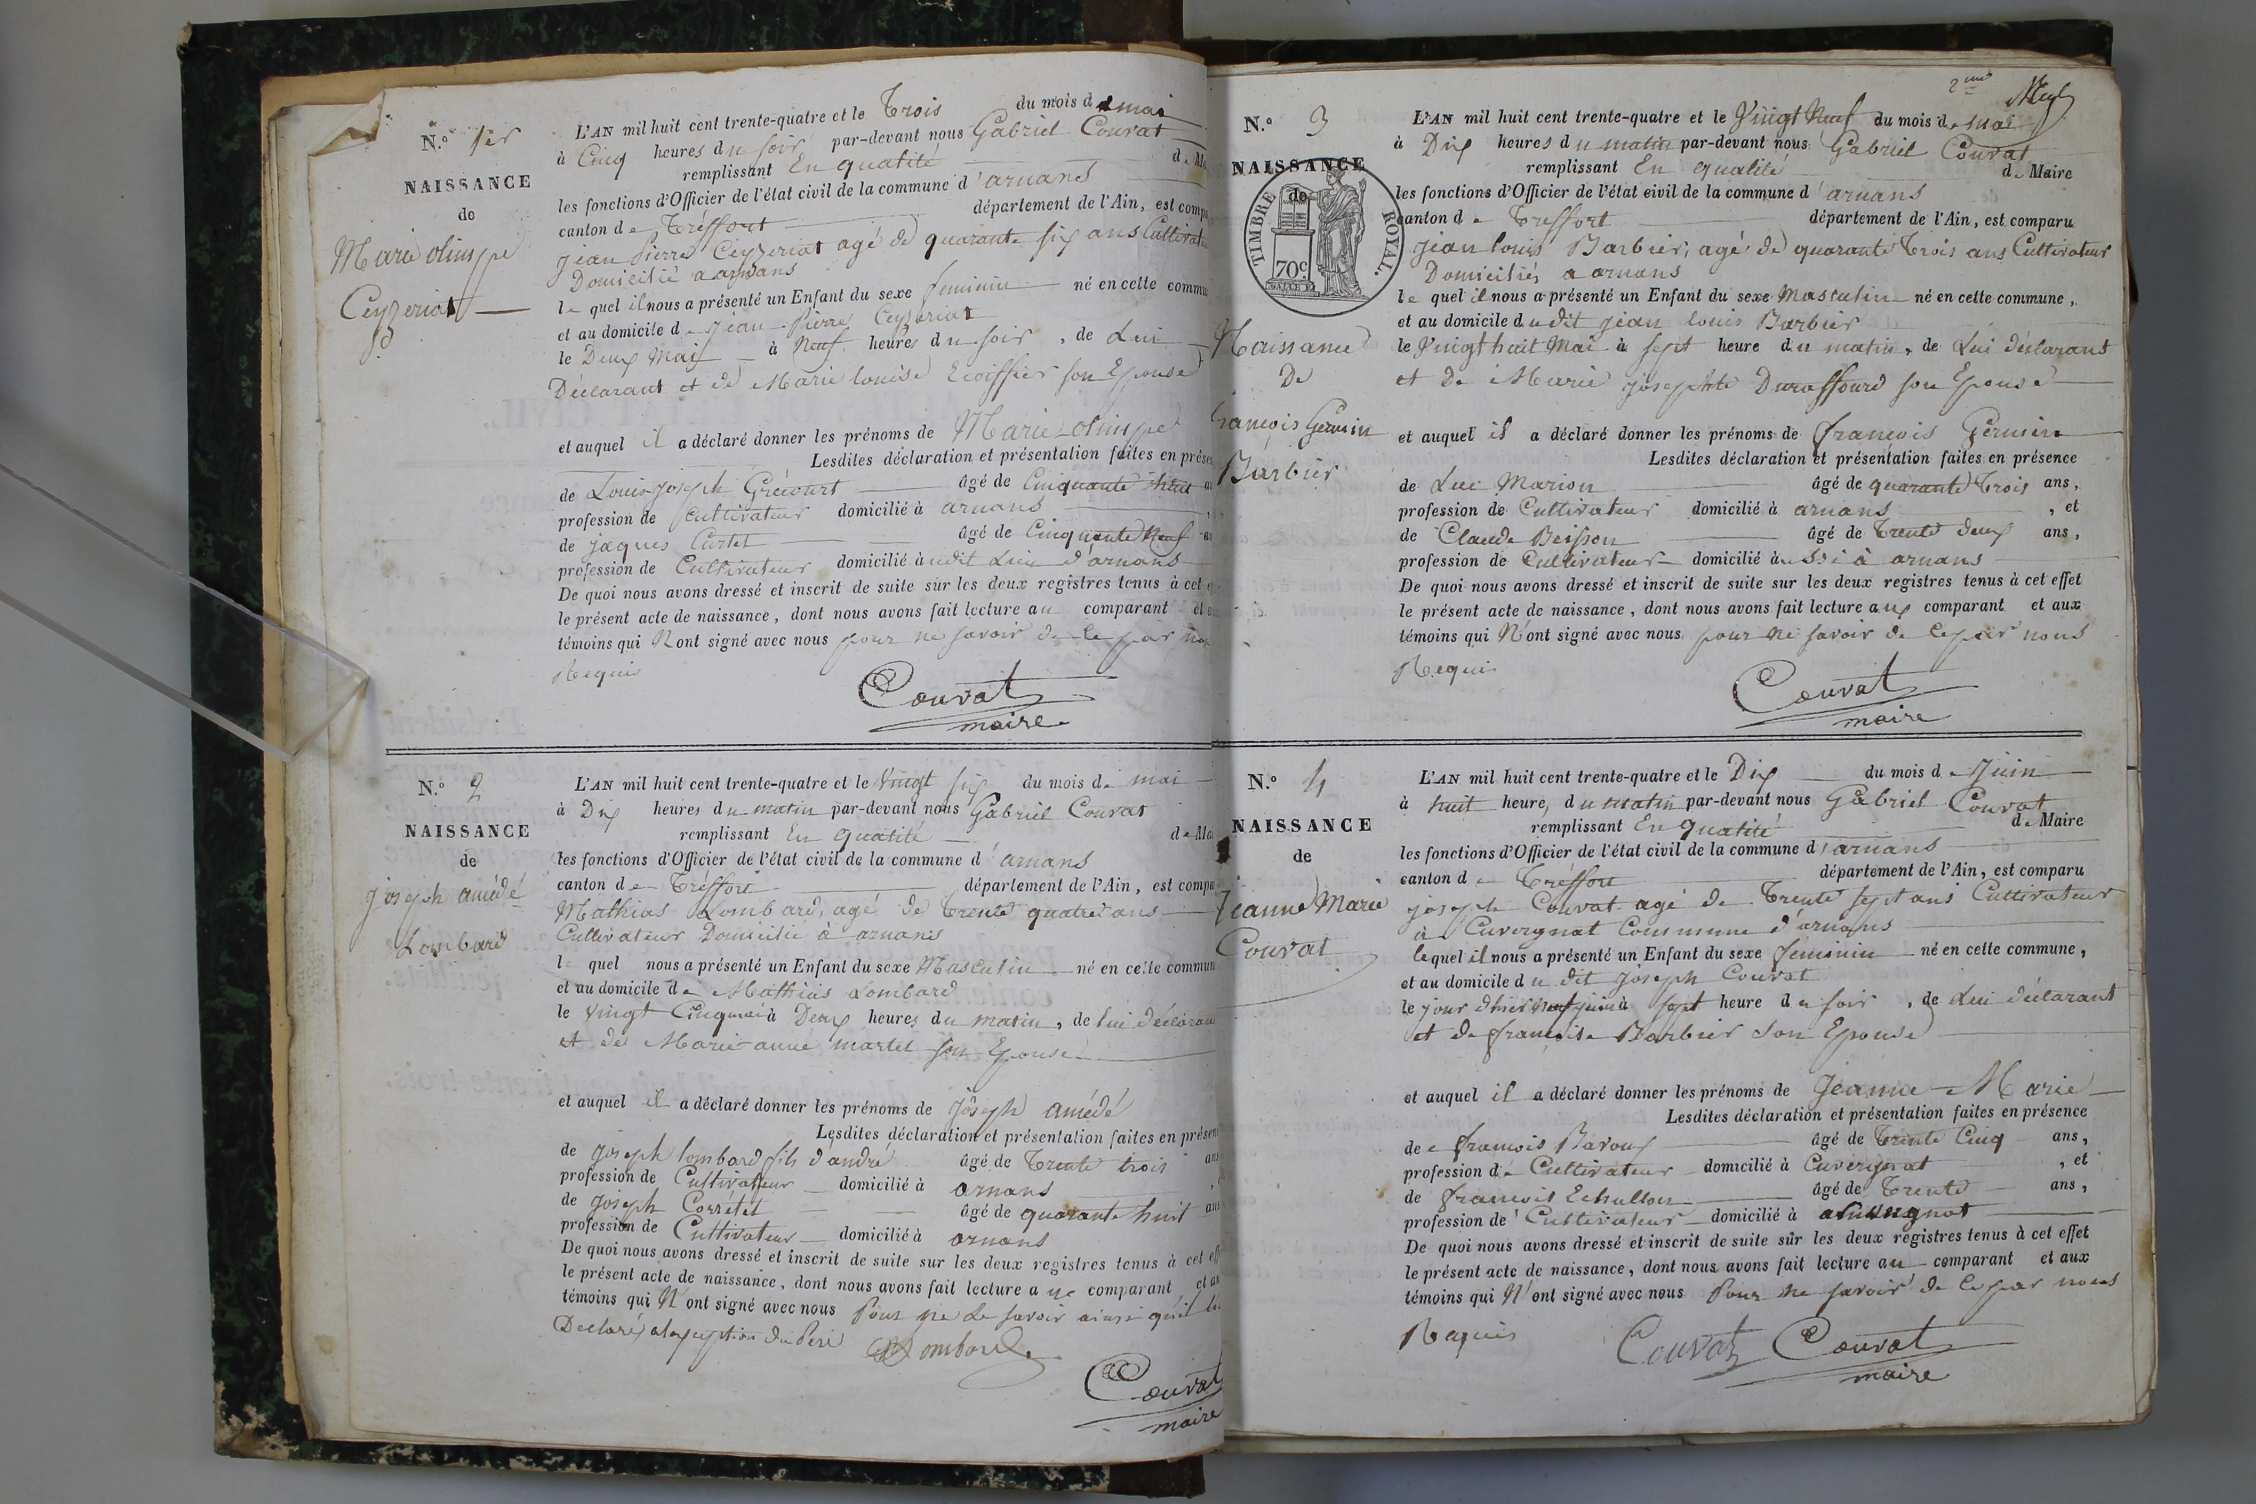 N.º 1er
NAISSANCE
de
Marie olimppe
Ceyzeriat
L'AN mil huit cent trente-quatre et le Trois du mois de mai
à Cinq heures du soir par-devant nous Gabriel Couvat
remplissant En qualité de Ma
les fonctions d'Officier de l'état civil de la commune d'arnans
canton de Tréffort département de l'Ain, est compa
jean Pierre Ceyzeriat agé de quarante six ans Cultivateu
Domicilié a arnans
le quel il nous a présenté un Enfant du sexe feminin né en cette commu
et au domicile de Jean Pierre Ceyzeriat
le Deux Mai à Neuf heures du soir, de Lui
Declarant et de Marie louise Ecoiffier son Epouse
et auquel il a déclaré donner les prénoms de Marie olimppe
Lesdites déclaration et présentation faites en prése
de Louis joseph Grécourt âgé de Cinquante huit a
profession de Cultivateur domicilié à arnans
de jaques Curtet âgé de Cinquante Neuf a
profession de Cultivateur domicilié à udit Lieu d'arnans
De quoi nous avons dressé et inscrit de suite sur les deux registres tenus à cet e
le présent acte de naissance, dont nous avons fait lecture au comparant et a
témoins qui N ont signé avec nous pour ne savoir de ce par nou
Requis
Couvat
maire
N.º 2
NAISSANCE
de
joseph amédé
Lombard
L'AN mil huit cent trente-quatre et le Vingt six du mois de mai
à Dix heures du matin par-devant nous Gabriel Couvat
remplissant En qualité de Mai
les fonctions d'Officier de l'état civil de la commune d'arnans
canton de Tréffort département de l'Ain, est compa
Mathias Lombard, agé de Trente quatre ans
Cultivateur Domicilié à arnans
l quel nous a présenté un Enfant du sexe Masculin né en cette commun
et au domicile de Mathias Lombard
le Vingt Cinq mai à Deux heures du matin, de lui déclaran
et de Marie anne martel son Epouse
et auquel il a déclaré donner les prénoms de Joseph amédé
Lesdites déclaration et présentation faites en présen
de joseph lombard fils d'andré âgé de Trente trois ans
profession de Cultivateur domicilié à arnans
de joseph Corrétet âgé de quarante huit ans
profession de Cultivateur domicilié à arnans
De quoi nous avons dressé et inscrit de suite sur les deux registres tenus à cet eff
le présent acte de naissance, dont nous avons fait lecture a ue comparant et au
témoins qui N' ont signé avec nous Pour ne Le savoir ainsi qu'il
Declaré, a lexception du Pere
Lombard
Couvat
maire
2me
N.º 3
NAISSANCE
de
TIMBRE ROYAL.
70c.
Naissance
De
françois Germin
Barbier
L'AN mil huit cent trente-quatre et le Vingt Neuf du mois de mai
à Dix heures du matin par-devant nous Gabriel Couvat
remplissant En qualité de Maire
les fonctions d'Officier de l'état civil de la commune d'arnans
canton de Treffort département de l'Ain, est comparu
jean louis Barbier, agé de quarante Trois ans Cultivateur
Domicilié, a arnans
le quel il nous a présenté un Enfant du sexe Masculin né en cette commune,
et au domicile du dit jean louis Barbier
le Vingt huit Mai à sept heure du matin, de Lui déclarant
et De Marie josephte Duraffourd son Epouse
et auquel il a déclaré donner les prénoms de françois Germin
Lesdites déclaration et présentation faites en présence
de Luc Marion âgé de quarante Trois ans,
profession de Cultivateur domicilié à arnans, et
de Claude Beisson âgé de Trente deux ans,
profession de Cultivateur domicilié à ussi à arnans
De quoi nous avons dressé et inscrit de suite sur les deux registres tenus à cet effet
le présent acte de naissance, dont nous avons fait lecture aux comparant et aux
témoins qui N'ont signé avec nous pour ne savoir de ce par nous
Requis
Couvat
maire
N.º 4
NAISSANCE
de
Jeanne Marie
Couvat
L'AN mil huit cent trente-quatre et le Dix du mois de Juin
à huit heure, du matin par-devant nous Gabriel Couvat
remplissant En qualité de Maire
les fonctions d'Officier de l'état civil de la commune d'arnans
canton de Treffort département de l'Ain, est comparu
joseph Couvat agé de Trente sept ans Cultivateur
à Cuvergnat Commune d'arnans
lequel il nous a présenté un Enfant du sexe feminin né en cette commune,
et au domicile du dit joseph Couvat
le jour d'hier neuf juin à sept heure du soir, de Lui déclarant
et de françoise Barbier son Epouse
et auquel il a déclaré donner les prénoms de Jeanne Marie
Lesdites déclaration et présentation faites en présence
de françois Baroux âgé de Trente Cinq ans,
profession de Cultivateur domicilié à Cuvergnat, et
de françois Echallon âgé de Trente ans,
profession de Cultivateur domicilié à
De quoi nous avons dressé et inscrit de suite sur les deux registres tenus à cet effet
le présent acte de naissance, dont nous avons fait lecture au comparant et aux
témoins qui N'ont signé avec nous Pour ne savoir de ce par nous
Requis
Couvat Couvat
maire